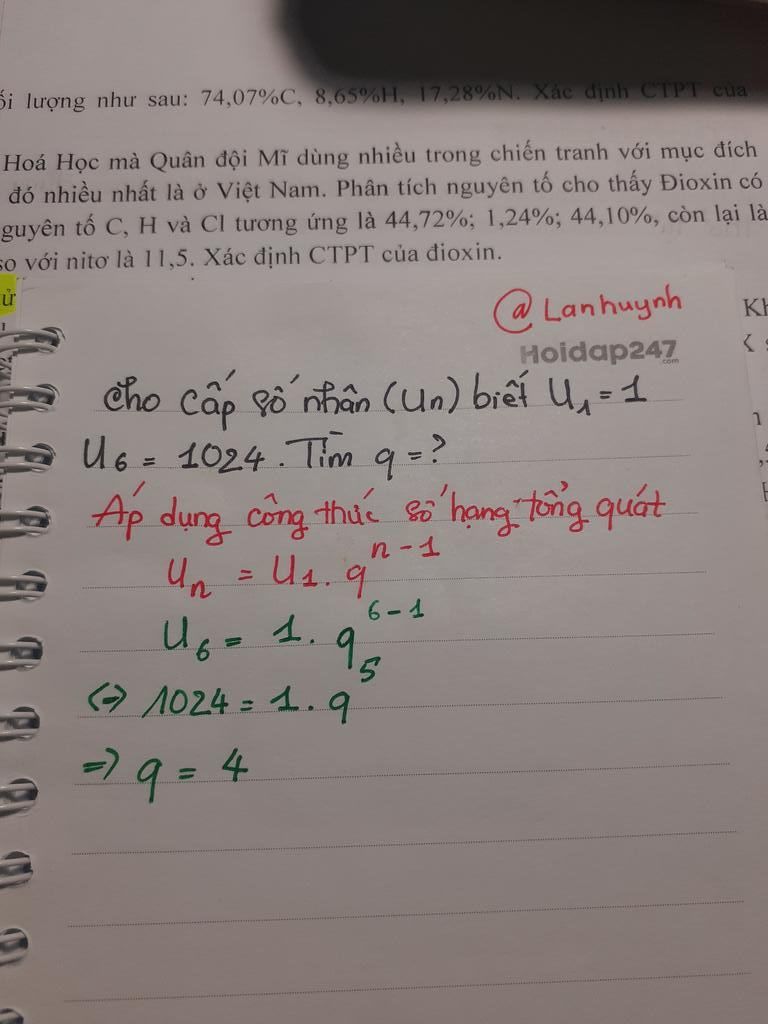 ối lượng như sau: 74,07%C, 8,65%H, 17,28%N. Xác định CTPT của
Hoá Học mà Quân đội Mĩ dùng nhiều trong chiến tranh với mục đích
đó nhiều nhất là ở Việt Nam. Phân tích nguyên tố cho thấy Đioxin có
guyên tố C, H và Cl tương ứng là 44,72%; 1,24%; 44,10%, còn lại là
so với nitơ là 11,5. Xác định CTPT của đioxin.
ử
@Lanhuynh
Kh
Hoidap247.com
Cho cấp số nhân (Un) biết U₁ = 1
U₆ = 1024. Tìm q = ?
Áp dụng công thức số hạng tổng quát
Uₙ = U₁ . qⁿ⁻¹
U₆ = 1 . q⁶⁻¹
<=> 1024 = 1 . q⁵
=> q = 4